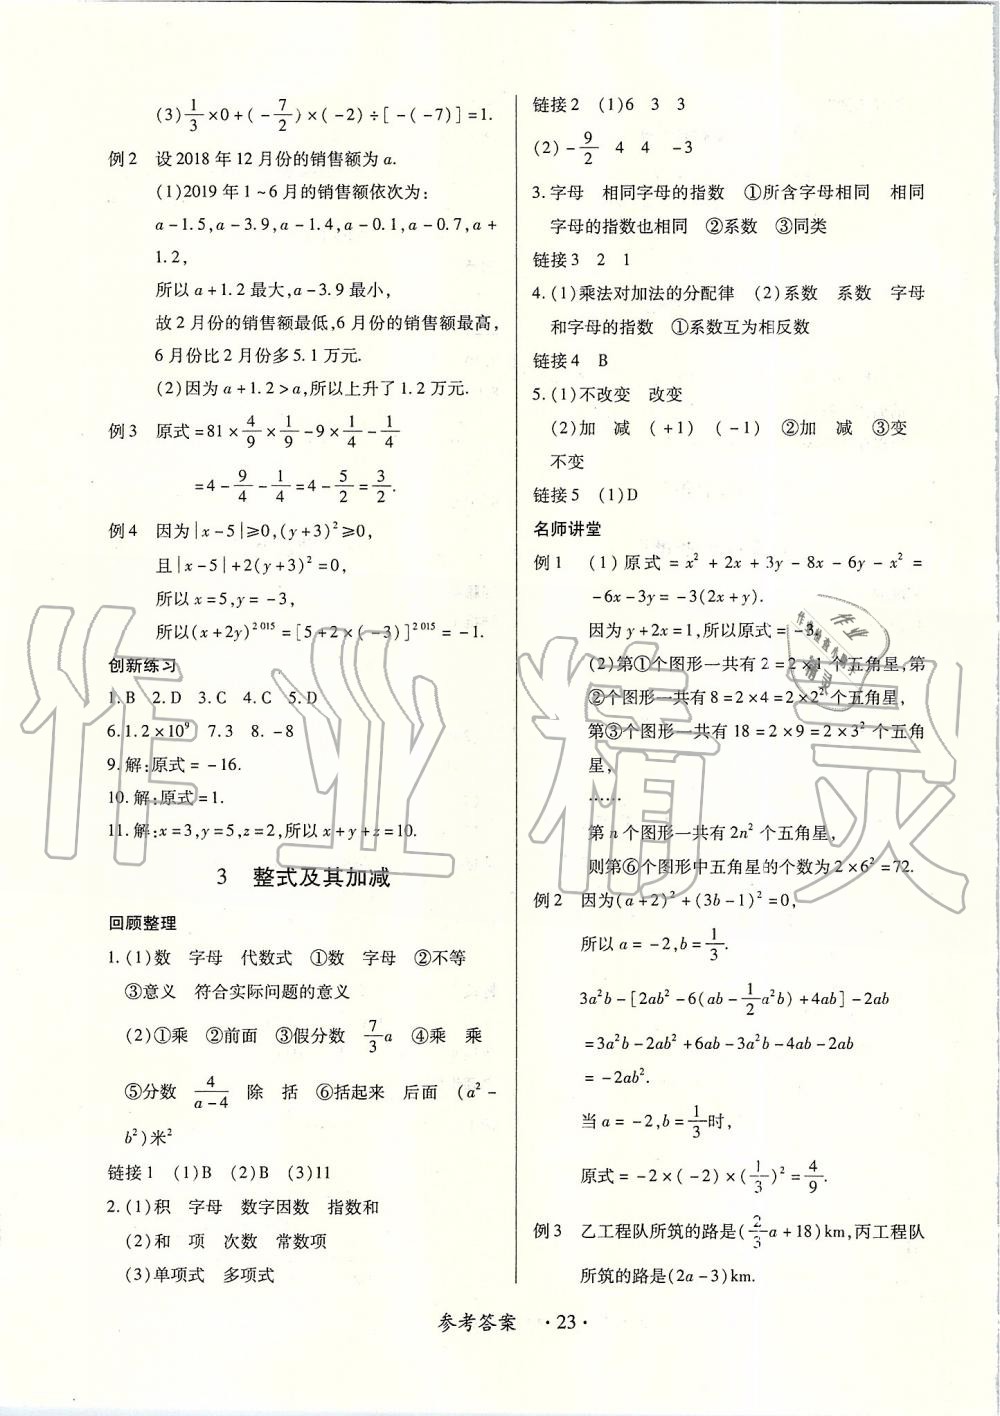 (3)1/3×0+(-7/2)×(-2)÷[-(-7)]=1.
例2 设2018年12月份的销售额为a.
(1)2019年1~6月的销售额依次为:
a-1.5,a-3.9,a-1.4,a-0.1,a-0.7,a+
1.2,
所以a+1.2最大,a-3.9最小,
故2月份的销售额最低,6月份的销售额最高,
6月份比2月份多5.1万元.
(2)因为a+1.2>a,所以上升了1.2万元.
例3 原式=81×4/9×1/9-9×1/4-1/4
=4-9/4-1/4=4-5/2=3/2.
例4 因为|x-5|≥0,(y+3)²≥0,
且|x-5|+2(y+3)²=0,
所以x=5,y=-3,
所以(x+2y)²⁰¹⁵=[5+2×(-3)]²⁰¹⁵=-1.
创新练习
1.B 2.D 3.C 4.C 5.D
6.1.2×10⁹ 7.3 8.-8
9.解:原式=-16.
10.解:原式=1.
11.解:x=3,y=5,z=2,所以x+y+z=10.
3 整式及其加减
回顾整理
1.(1)数 字母 代数式 ①数 字母 ②不等
③意义 符合实际问题的意义
(2)①乘 ②前面 ③假分数 7/3a ④乘 乘
⑤分数 4/(a-4) 除 括 ⑥括起来 后面 (a²-
b²)米²
链接1 (1)B (2)B (3)11
2.(1)积 字母 数字因数 指数和
(2)和 项 次数 常数项
(3)单项式 多项式
链接2 (1)6 3 3
(2)-9/2 4 4 -3
3.字母 相同字母的指数 ①所含字母相同 相同
字母的指数也相同 ②系数 ③同类
链接3 2 1
4.(1)乘法对加法的分配律 (2)系数 系数 字母
和字母的指数 ①系数互为相反数
链接4 B
5.(1)不改变 改变
(2)加 减 (+1) (-1) ②加 减 ③变
不变
链接5 (1)D
名师讲堂
例1 (1)原式=x²+2x+3y-8x-6y-x²=
-6x-3y=-3(2x+y).
因为y+2x=1,所以原式=-3.
(2)第①个图形一共有2=2×1²个五角星,第
②个图形一共有8=2×4=2×2²个五角星,
第③个图形一共有18=2×9=2×3²个五角
星,
……
第n个图形一共有2n²个五角星,
则第⑥个图形中五角星的个数为2×6²=72.
例2 因为(a+2)²+(3b-1)²=0,
所以a=-2,b=1/3.
3a²b-[2ab²-6(ab-1/2a²b)+4ab]-2ab
=3a²b-2ab²+6ab-3a²b-4ab-2ab
=-2ab².
当a=-2,b=1/3时,
原式=-2×(-2)×(1/3)²=4/9.
例3 乙工程队所筑的路是(2/3a+18)km,丙工程队
所筑的路是(2a-3)km.
参考答案 ·23·
作业精灵